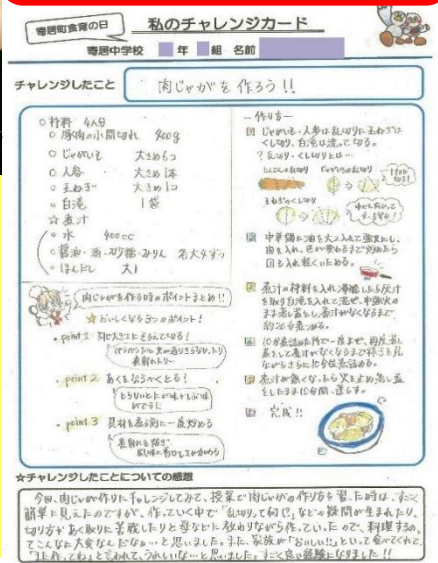 寄居町食育の日
私のチャレンジカード
寄居中学校 年 組 名前
チャレンジしたこと
肉じゃがを作ろう!!
○材料 4人分
○豚肉の小間切れ 400g
○じゃがいも 大きめ6コ
○人参 大きめ1本
○玉ねぎ 大きめ1コ
○白滝 1袋
☆煮汁
○水 400cc
○醤油・酒・砂糖・みりん 各大4ずつ
○ほんだし 大1
肉じゃがを作る時のポイントまとめ!!
☆おいしくなる3つのポイント!
・point 1 同じ大きさにそろえて切る!
・point 2 あくをなるべくとる!
・point 3 具材を煮る前に一度炒める
-作り方-
じゃがいも・人参は乱切りに玉ねぎは
くし切り、白滝は洗って切る。
?乱切り・くし切りとは…
にんじんの乱切り じゃがいもの乱切り
玉ねぎのくし切り
中華鍋に油を大2入れて強火にし、
肉を入れ、色が変わるまで炒めたら
①を入れ軽くいためる。
煮汁の材料を入れ沸騰したら灰汁
を取り白滝を入れて混ぜ、中強火の
まま落し蓋し、煮汁がなくなるまで
約20分煮つめる。
10分煮詰めた所で一度まぜ、再度落し
蓋をして煮汁がなくなるまで様子を見
ながらさらに10分位煮詰める。
煮汁が無くなったら火を止め、落し蓋
をしたまま10分間、蒸らす。
完成!!
☆チャレンジしたことについての感想
今回、肉じゃが作りにチャレンジしてみて、授業で肉じゃがの作り方を習った時は、すごく
簡単に見えたのですが、作っていく中で「乱切りって何!?」などの疑問が生まれたり、
切り方やあく取りに苦戦したりと母などに教わりながら作っていたので、料理するの
ってこんなに大変なんだなぁ…と思いました。また、家族が「おいしい!!」といって食べてくれて
「また作ってね」と言われて、うれしいな…と思いました。すごく良い経験になりました!!